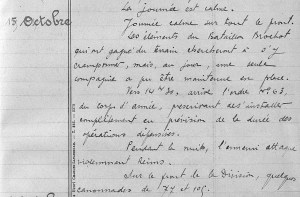 La journée est calme.
15 Octobre
Journée calme sur tout le front.
Les éléments du Bataillon Brochot
qui ont gagné du terrain cherchent à s'y
cramponner, mais, au jour, une seule
compagnie a pu être maintenue en place.
Vers 14h30, arrive l'ordre N° 63,
du corps d'armée, prescrivant de s'installer
complètement en prévision de la durée des
opérations défensives.
Pendant la nuit, l'ennemi attaque
violemment Reims.
Sur le front de la Division, quelques
canonnades de 77 et 105.